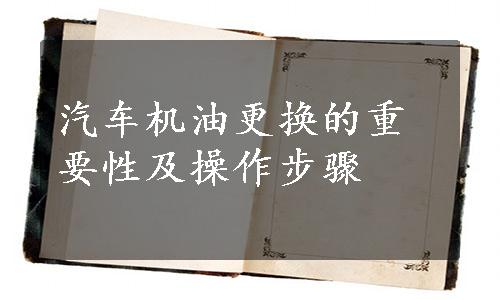 汽车机油更换的重
要性及操作步骤